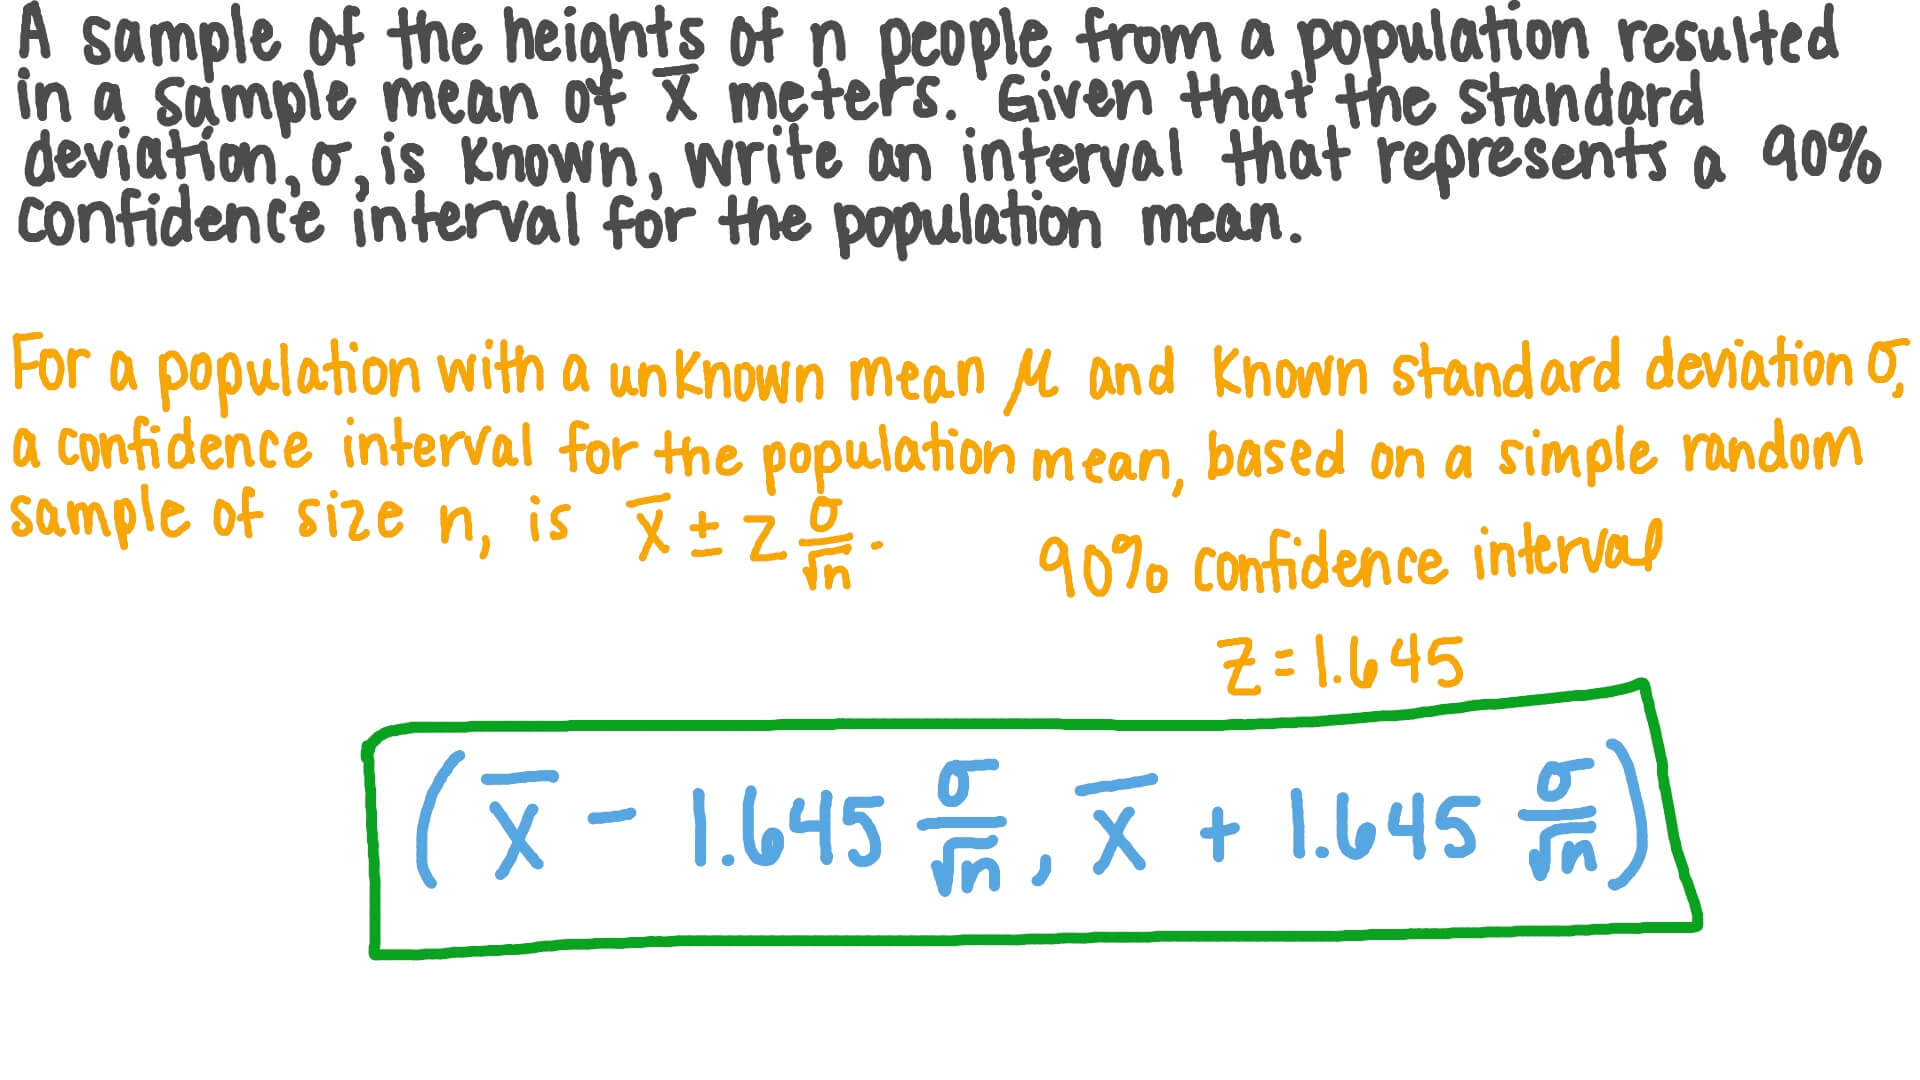 A sample of the heights of n people from a population resulted
in a sample mean of x̄ meters. Given that the standard
deviation, σ, is known, write an interval that represents a 90%
confidence interval for the population mean.
For a population with a unknown mean μ and known standard deviation σ,
a confidence interval for the population mean, based on a simple random
sample of size n, is x̄ ± z σ/√n.
90% confidence interval
z = 1.645
(x̄ - 1.645 σ/√n, x̄ + 1.645 σ/√n)